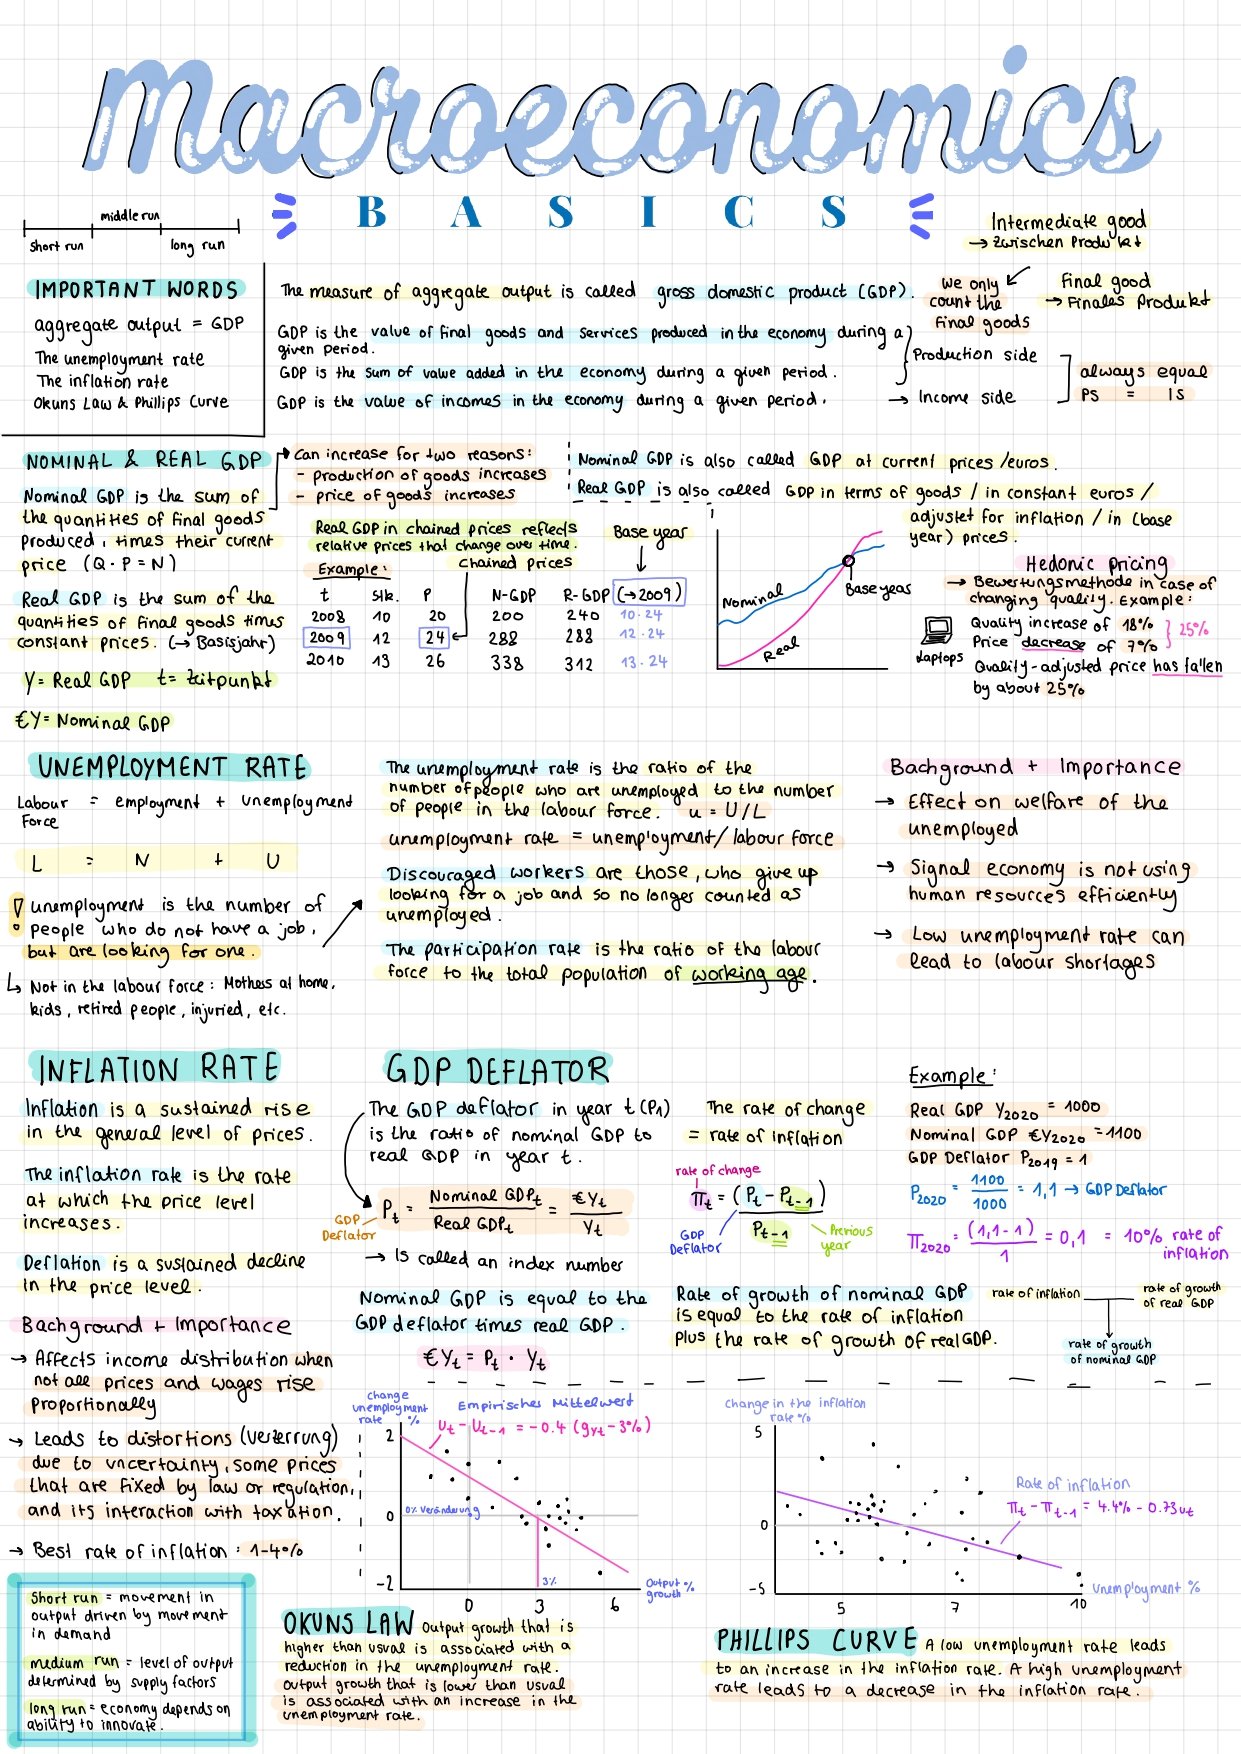 Macroeconomics
BASICS
middle run
short run
long run
Intermediate good
→ Zwischen Produkt
we only
count the
final goods
Final good
→ Finales Produkt
IMPORTANT WORDS
aggregate output = GDP
The unemployment rate
The inflation rate
Okuns Law & Phillips Curve
The measure of aggregate output is called gross domestic product (GDP).
GDP is the value of final goods and services produced in the economy during a
given period.
GDP is the sum of value added in the economy during a given period.
GDP is the value of incomes in the economy during a given period.
Production side
→ Income side
always equal
PS = IS
NOMINAL & REAL GDP
Nominal GDP is the sum of
the quantities of final goods
produced, times their current
price (Q·P=N)
Real GDP is the sum of the
quantities of final goods times
constant prices. (→ Basisjahr)
Y= Real GDP t= Zeitpunkt
€Y= Nominal GDP
Can increase for two reasons:
- production of goods increases
- price of goods increases
Nominal GDP is also called GDP at current prices/euros.
Real GDP is also called GDP in terms of goods / in constant euros /
adjustet for inflation / in (base
year) prices.
Real GDP in chained prices reflects
relative prices that change over time.
Example:
Chained prices
Base year
t Stk. P N-GDP R-GDP (→2009)
2008 10 20 200 240 10·24
2009 12 24 288 288 12·24
2010 13 26 338 312 13·24
Nominal
Real
Base year
Hedonic pricing
→ Bewertungsmethode in case of
changing quality. Example:
Laptops
Quality increase of 18%
Price decrease of 7%
25%
Quality-adjusted price has fallen
by about 25%
UNEMPLOYMENT RATE
Labour = employment + unemployment
Force
L = N + U
! unemployment is the number of
people who do not have a job,
but are looking for one.
↳ Not in the labour force: Mothers at home,
kids, retired people, injuried, etc.
The unemployment rate is the ratio of the
number of people who are unemployed to the number
of people in the labour force. u = U/L
unemployment rate = unemployment/labour force
Discouraged workers are those, who give up
looking for a job and so no longer counted as
unemployed.
The participation rate is the ratio of the labour
force to the total population of working age.
Bachground + Importance
→ Effect on welfare of the
unemployed
→ Signal economy is not using
human resources efficiently
→ Low unemployment rate can
lead to labour shortages
INFLATION RATE
Inflation is a sustained rise
in the general level of prices.
The inflation rate is the rate
at which the price level
increases.
Deflation is a sustained decline
in the price level.
Bachground + Importance
→ Affects income distribution when
not all prices and wages rise
proportionally
→ Leads to distortions (Verzerrung)
due to uncertainty, some prices
that are fixed by law or regulation,
and its interaction with taxation.
→ Best rate of inflation: 1-4%
GDP DEFLATOR
The GDP deflator in year t (P1)
is the ratio of nominal GDP to
real GDP in year t.
GDP
Deflator
Pt = Nominal GDPt / Real GDPt = €Yt / Yt
→ Is called an index number
Nominal GDP is equal to the
GDP deflator times real GDP.
€Yt = Pt · Yt
The rate of change
= rate of inflation
rate of change
πt = (Pt - Pt-1) / Pt-1
GDP
Deflator
Previous
year
Rate of growth of nominal GDP
is equal to the rate of inflation
plus the rate of growth of real GDP.
Example:
Real GDP Y2020 = 1000
Nominal GDP €Y2020 = 1100
GDP Deflator P2019 = 1
P2020 = 1100 / 1000 = 1,1 → GDP Deflator
π2020 = (1,1-1) / 1 = 0,1 = 10% rate of
inflation
rate of inflation
rate of growth
of real GDP
rate of growth
of nominal GDP
change
unemployment
rate %
Empirisches Mittelwert
Ut - Ut-1 = -0.4 (gyt - 3%)
2
0% Veränderung
0
-2
3%
Output %
growth
0 3 6
OKUNS LAW Output growth that is
higher than usual is associated with a
reduction in the unemployment rate.
Output growth that is lower than usual
is associated with an increase in the
unemployment rate.
Change in the inflation
rate %
5
Rate of inflation
πt - πt-1 = 4.4% - 0.73ut
0
-5
Unemployment %
5 7 10
PHILLIPS CURVE A low unemployment rate leads
to an increase in the inflation rate. A high unemployment
rate leads to a decrease in the inflation rate.
Short run = movement in
output driven by movement
in demand
medium run = level of output
determined by supply factors
long run = economy depends on
ability to innovate.